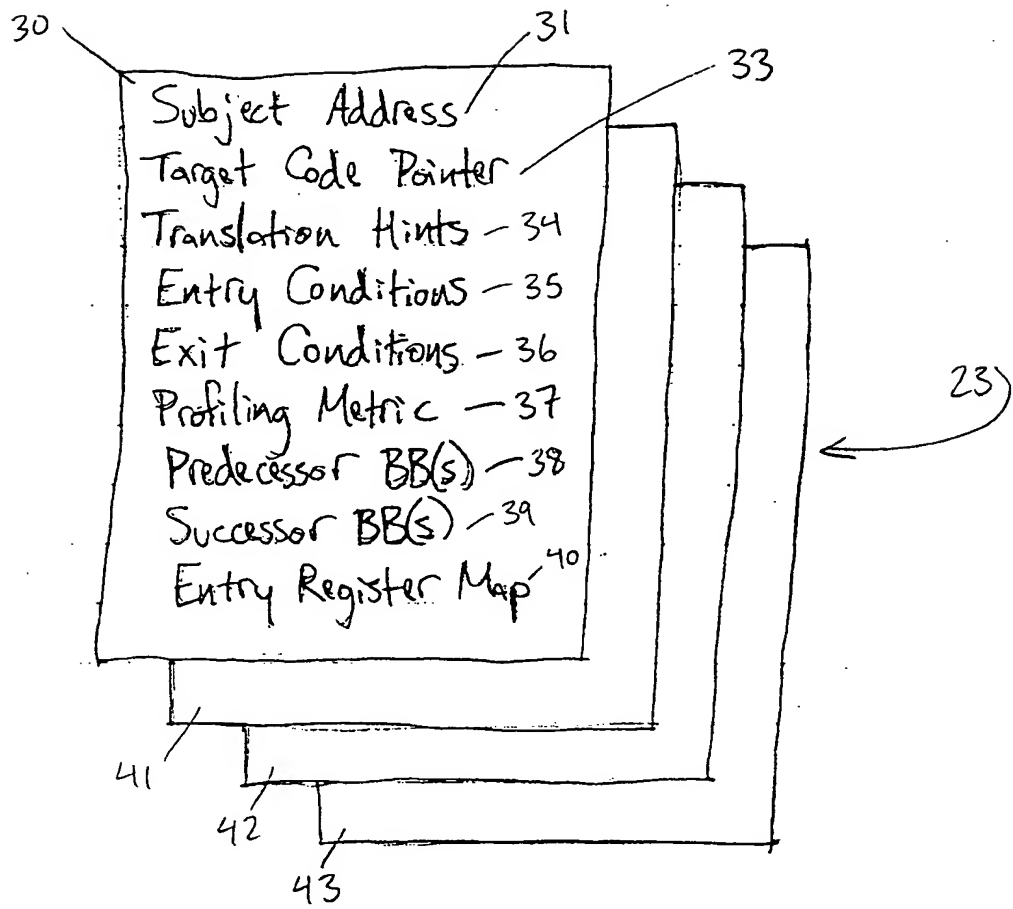 30
31
33
Subject Address
Target Code Pointer
Translation Hints - 34
Entry Conditions - 35
Exit Conditions - 36
Profiling Metric - 37
23
Predecessor BB(s) - 38
Successor BB(s) - 39
Entry Register Map 40
41
42
43